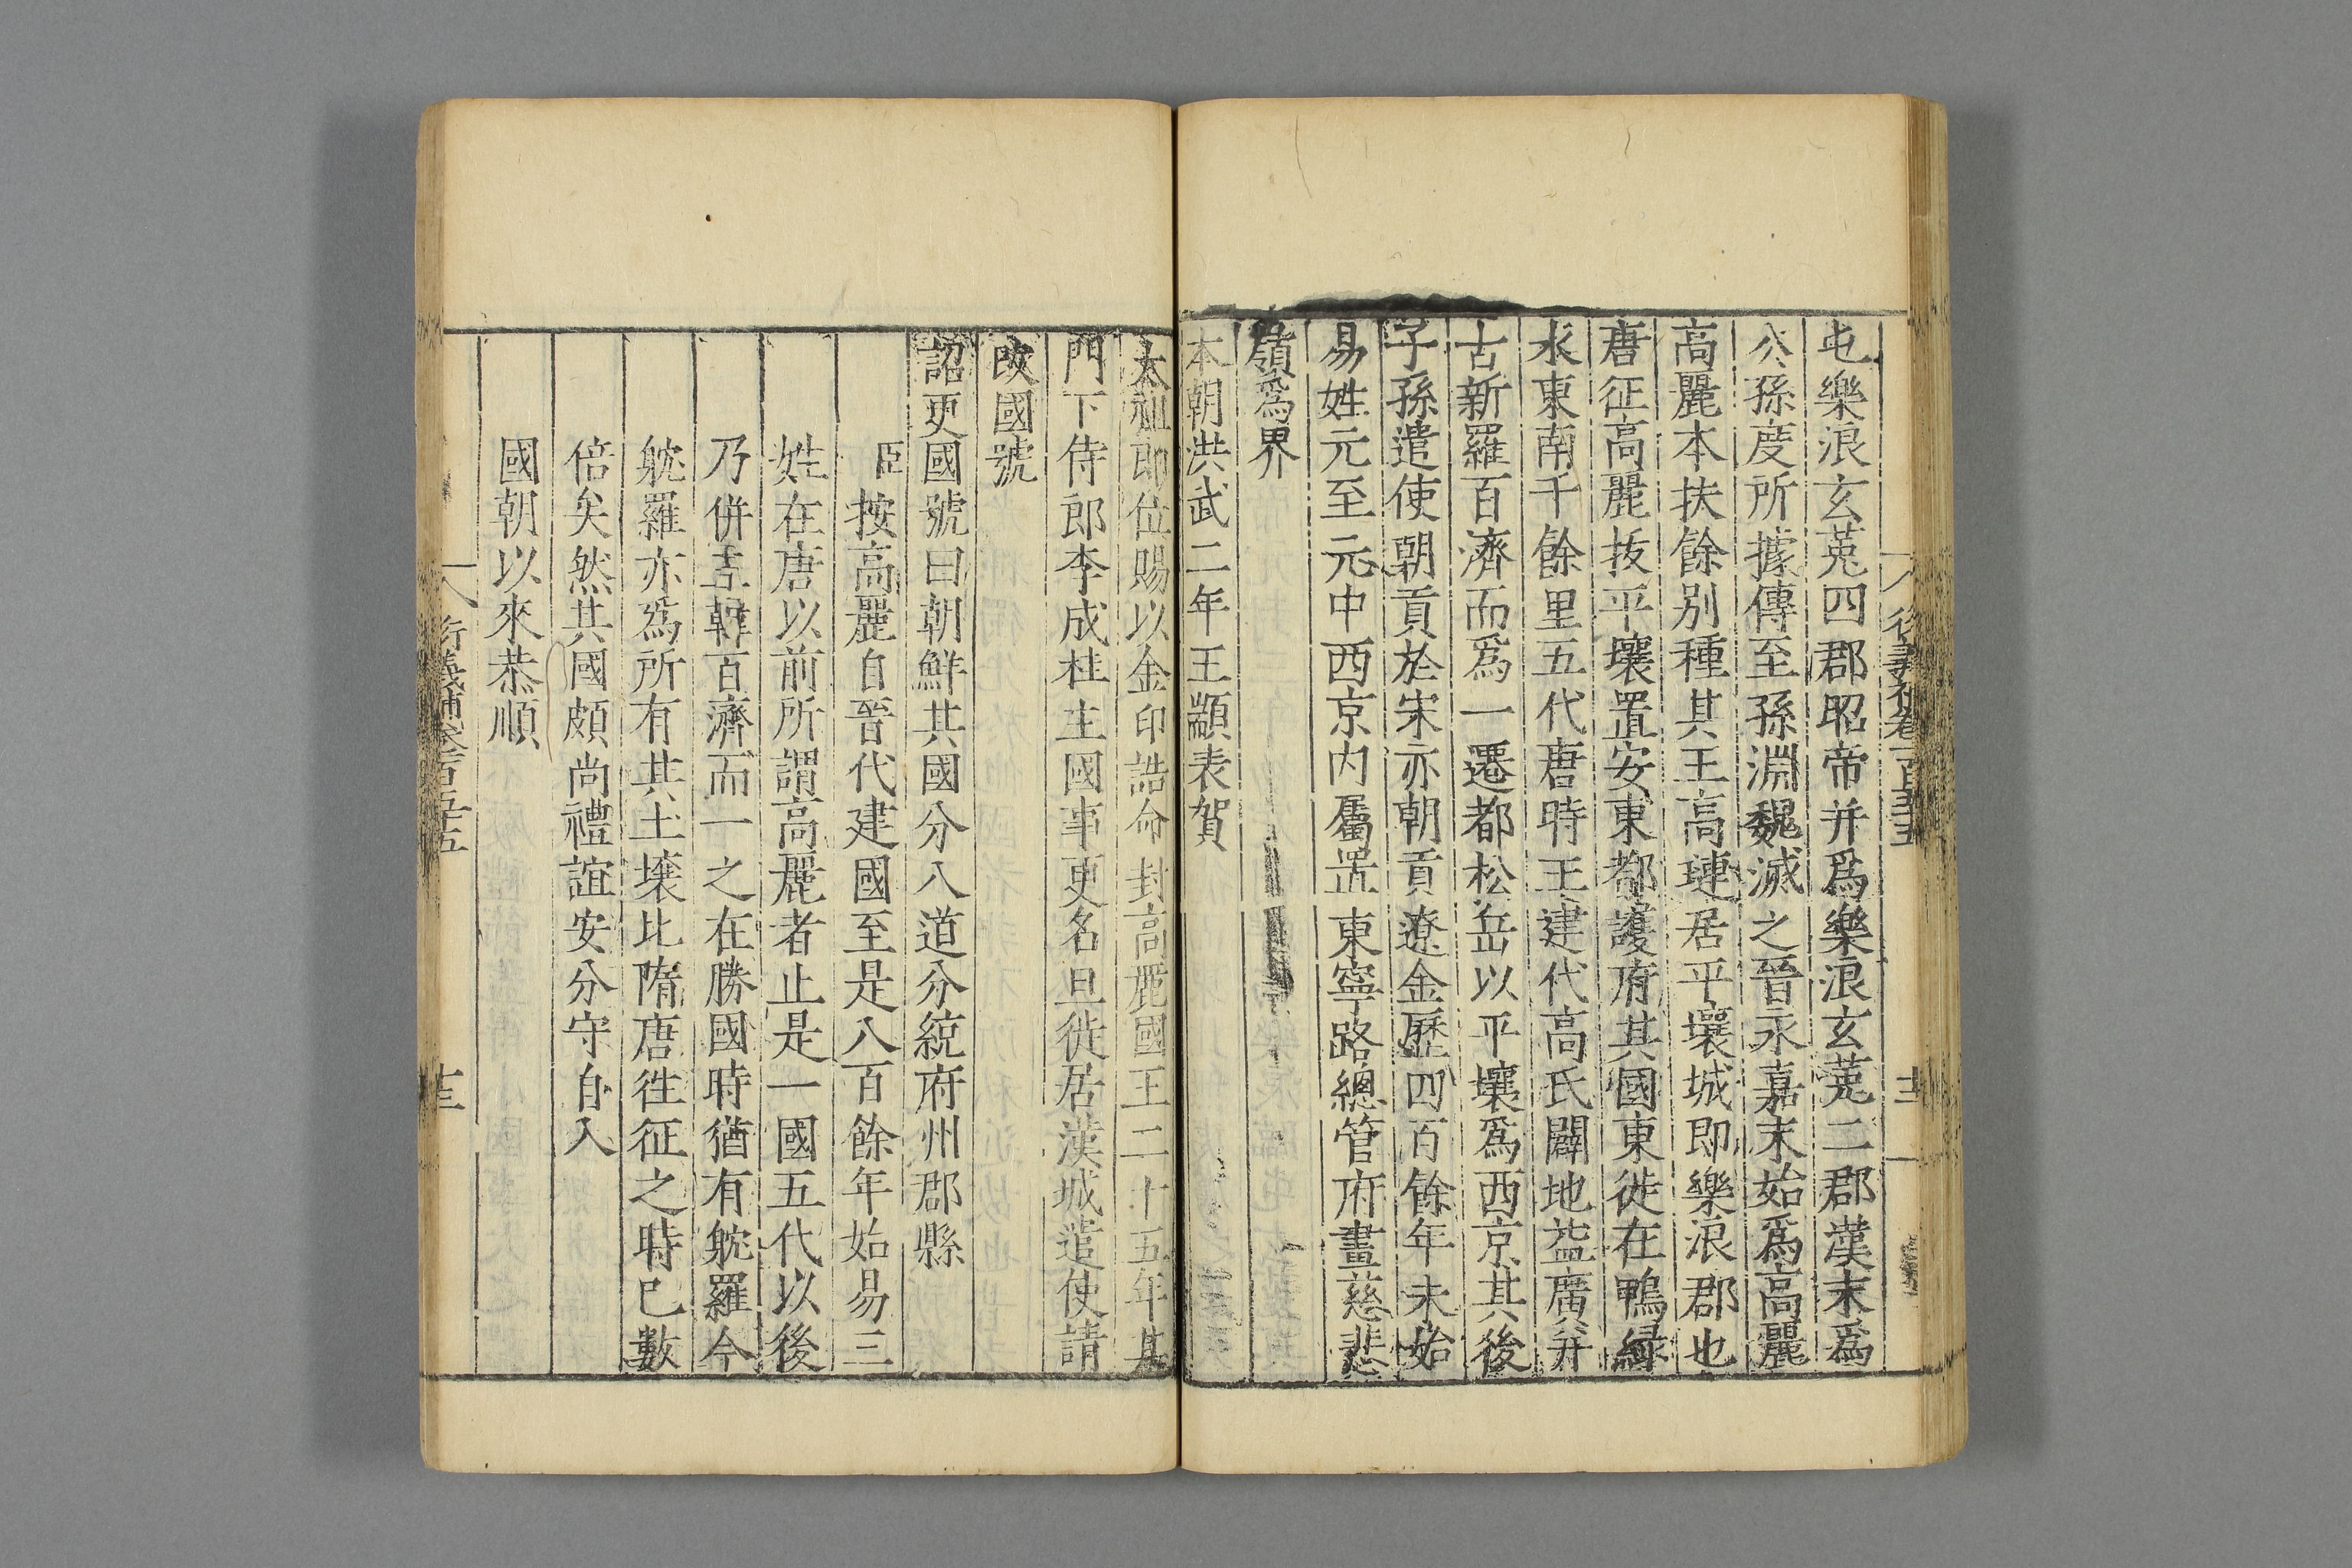 屯樂浪玄菟四郡昭帝并爲樂浪玄菟二郡漢末爲
公孫度所據傳至孫淵魏滅之晉永嘉末始爲高麗
高麗本扶餘別種其王高璉居平壤城即樂浪郡也
唐征高麗拔平壤置安東都護府其國東徙在鴨綠
水東南千餘里五代唐時王建代高氏闢地益廣并
古新羅百濟而爲一遷都松岳以平壤爲西京其後
子孫遣使朝貢於宋亦朝貢遼金歷四百餘年未始
易姓元至元中西京内屬置東寧路總管府畫慈悲
嶺爲界
本朝洪武二年王顓表賀
太祖即位賜以金印誥命封高麗國王二十五年其
門下侍郎李成桂主國事更名旦徙居漢城遣使請
改國號
詔更國號曰朝鮮其國分八道分統府州郡縣
臣按高麗自晉代建國至是八百餘年始易三
姓在唐以前所謂高麗者止是一國五代以後
乃併吞韓百濟而一之在勝國時猶有躭羅今
躭羅亦爲所有其土壤比隋唐往征之時已數
倍矣然其國頗尚禮誼安分守自入
國朝以來恭順
衍義補卷一百五十五